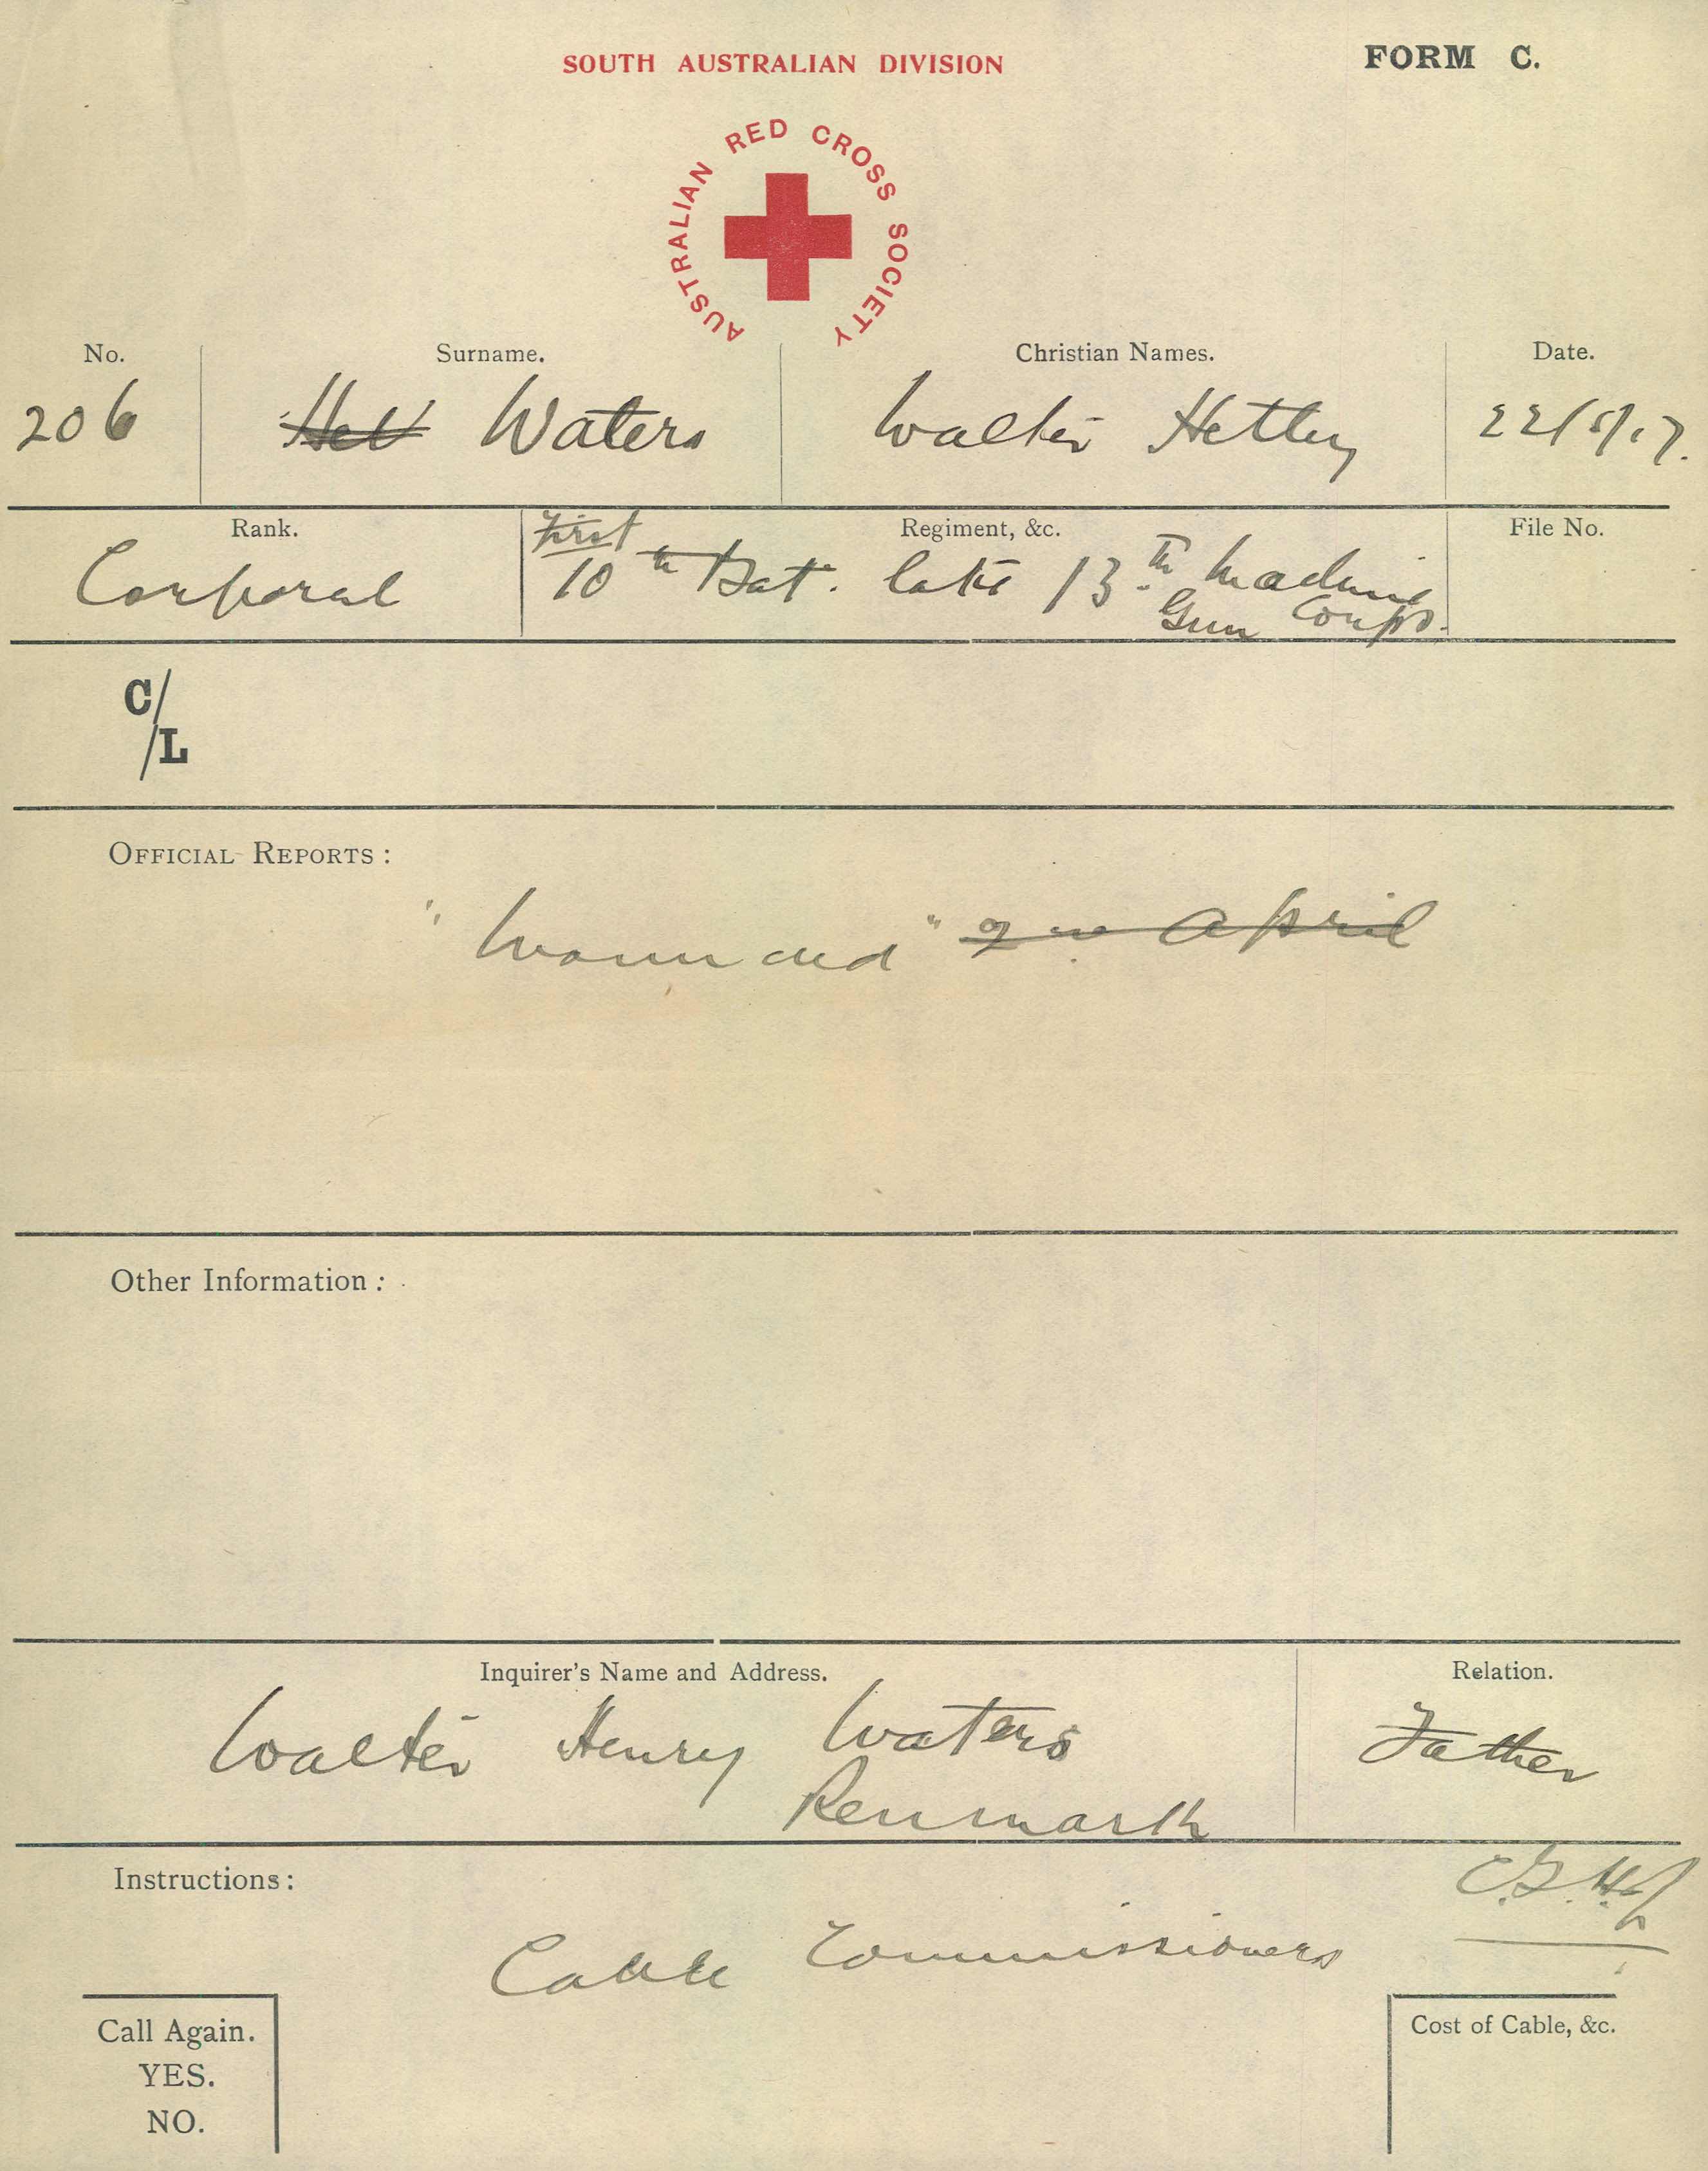 SOUTH AUSTRALIAN DIVISION
FORM C.
AUSTRALIAN RED CROSS SOCIETY
No. Surname. Christian Names. Date.
206 Het Waters Walter Hetley 22/5/17.
Rank. Regiment, &c. File No.
First
Corporal 10th Bat. late 13th Machine
Gun Corps.
C/L
OFFICIAL REPORTS :
"Wounded" April
Other Information :
Inquirer's Name and Address. Relation.
Walter Henry Waters Father
Renmark
Instructions :
Cable Commissioners
Call Again.
YES.
NO.
Cost of Cable, &c.